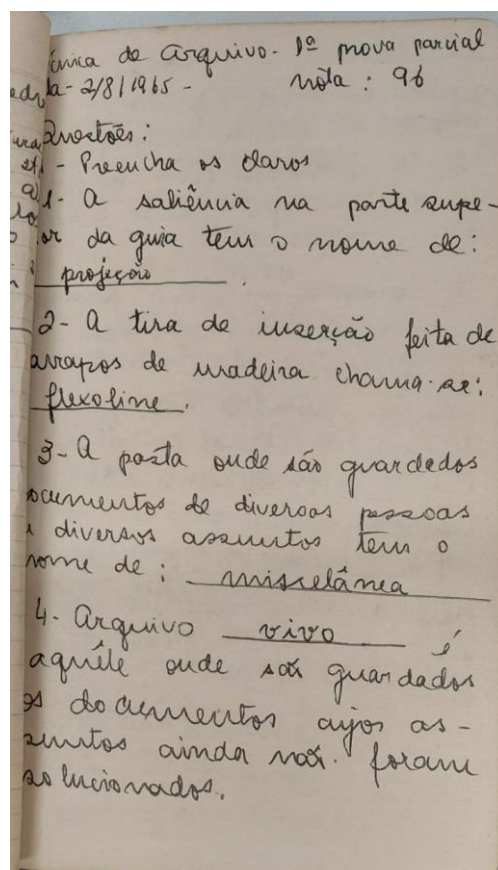 cnica de Arquivo - 1ª prova parcial
da - 2/8/1965 - nota : 96
Questões :
1 - Preencha os claros
1 - A saliência na parte supe-
or da guia tem o nome de :
projeção .
2 - A tira de inserção feita de
arrapos de madeira chama-se :
flexoline .
3 - A pasta onde são guardados
ocumentos de diversas pessoas
e diversos assuntos tem o
nome de : miscelânea
4 - Arquivo vivo é
aquêle onde são guardados
os documentos cujos as-
suntos ainda não foram
solucionados .